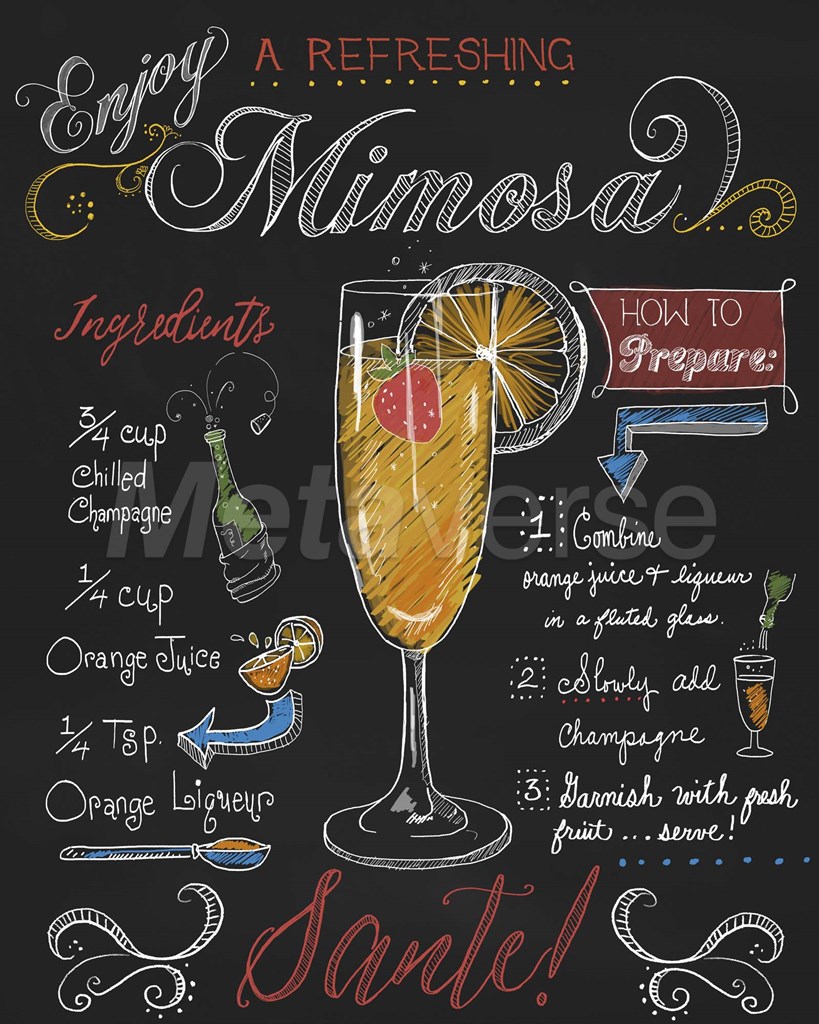 Enjoy
A REFRESHING
Mimosa
Ingredients
3/4 cup
Chilled
Champagne
1/4 cup
Orange Juice
1/4 Tsp.
Orange Liqueur
HOW TO
Prepare:
1 Combine
orange juice + liqueur
in a fluted glass.
2 Slowly add
Champagne
3 Garnish with fresh
fruit ... serve!
Sante!
Metaverse